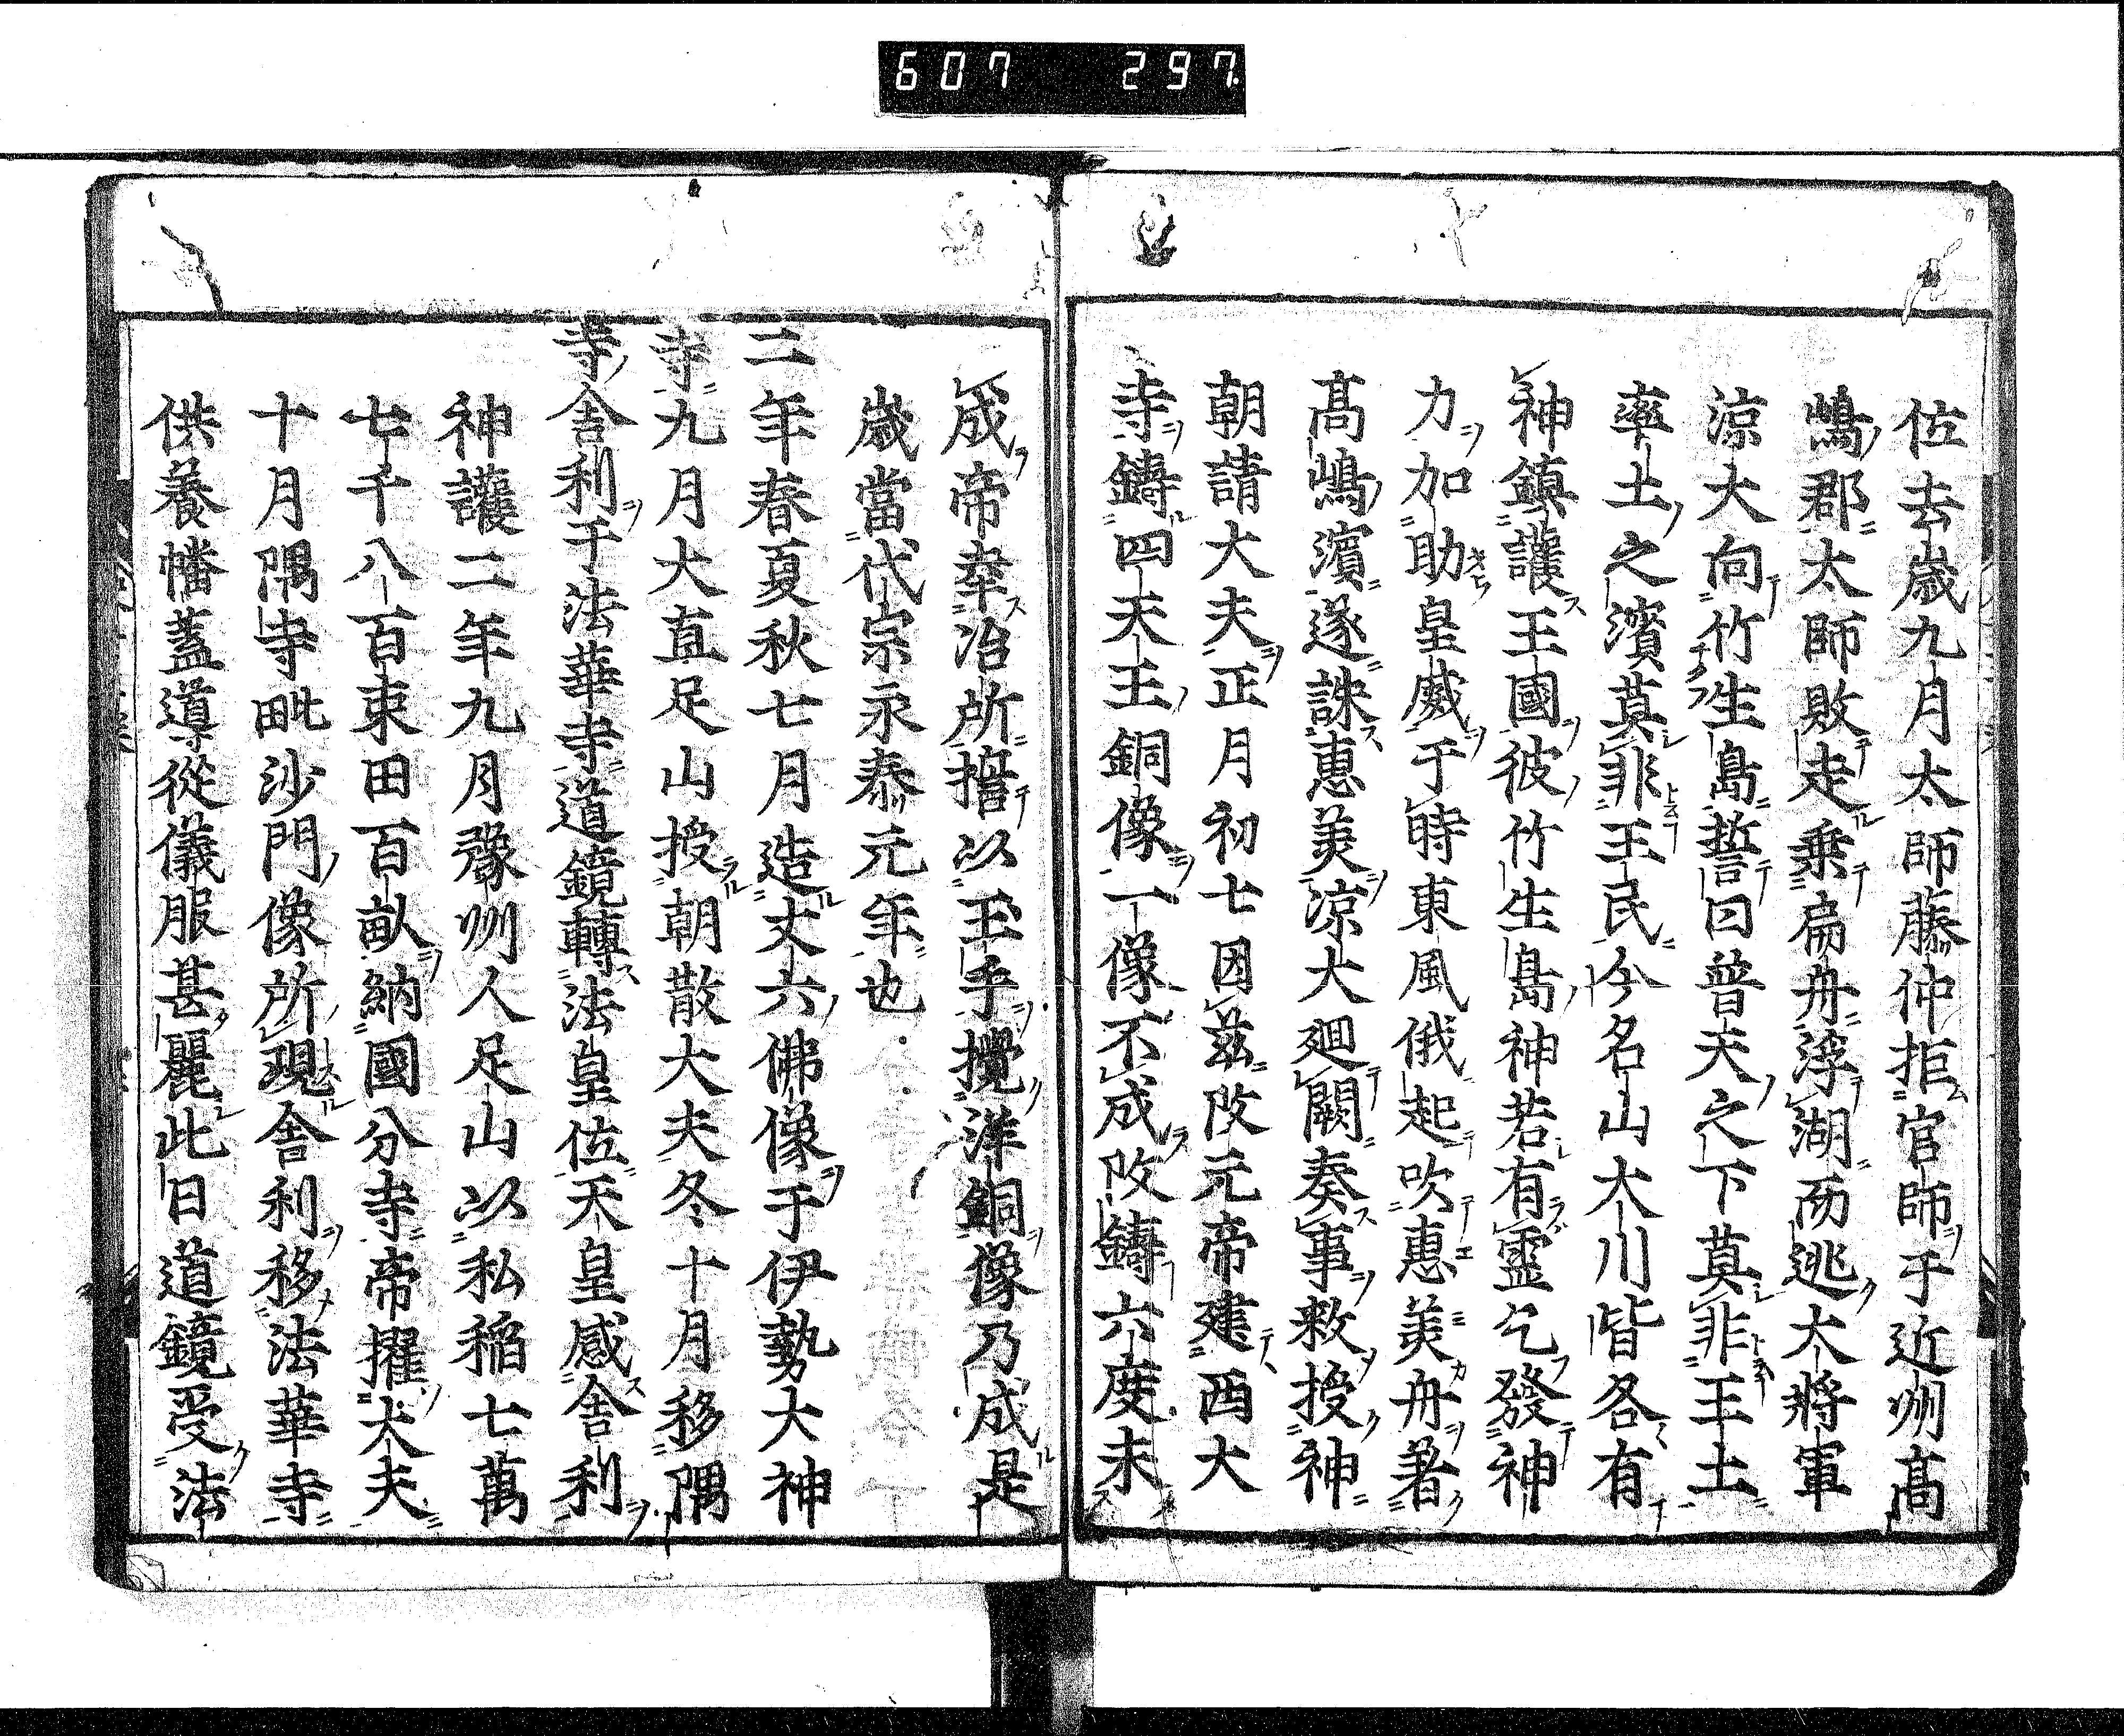 607 297
位去歳九月太師藤仲拒官師于近州髙
嶋郡太師敗走乗扁舟浮湖而逃大將軍
涼大向竹生島誓曰普天之下莫非王土
率土之濱莫非王民今名山大川皆各有
神鎮護王國彼竹生島神若有靈乞發神
力加助皇威于時東風俄起吹惠美舟著
髙嶋濱遂誅惠美涼大廻闕奏事敕授神
朝請大夫正月初七因兹改元帝建西大
寺鑄四天王銅像一像不成改鑄六度未
成帝幸冶所誓以玉手攪洋銅像乃成是
歳當代宗永泰元年也
二年春夏秋七月造丈六佛像于伊勢大神
寺九月大直足山授朝散大夫冬十月移隅
寺舎利于法華寺道鏡轉法皇位天皇感舎利
神護二年九月豫州人足山以私稲七萬
七千八百束田百畝納國分寺帝擢大夫
十月隅寺毗沙門像所現舎利移法華寺
供養幡蓋導從儀服甚麗此日道鏡受法